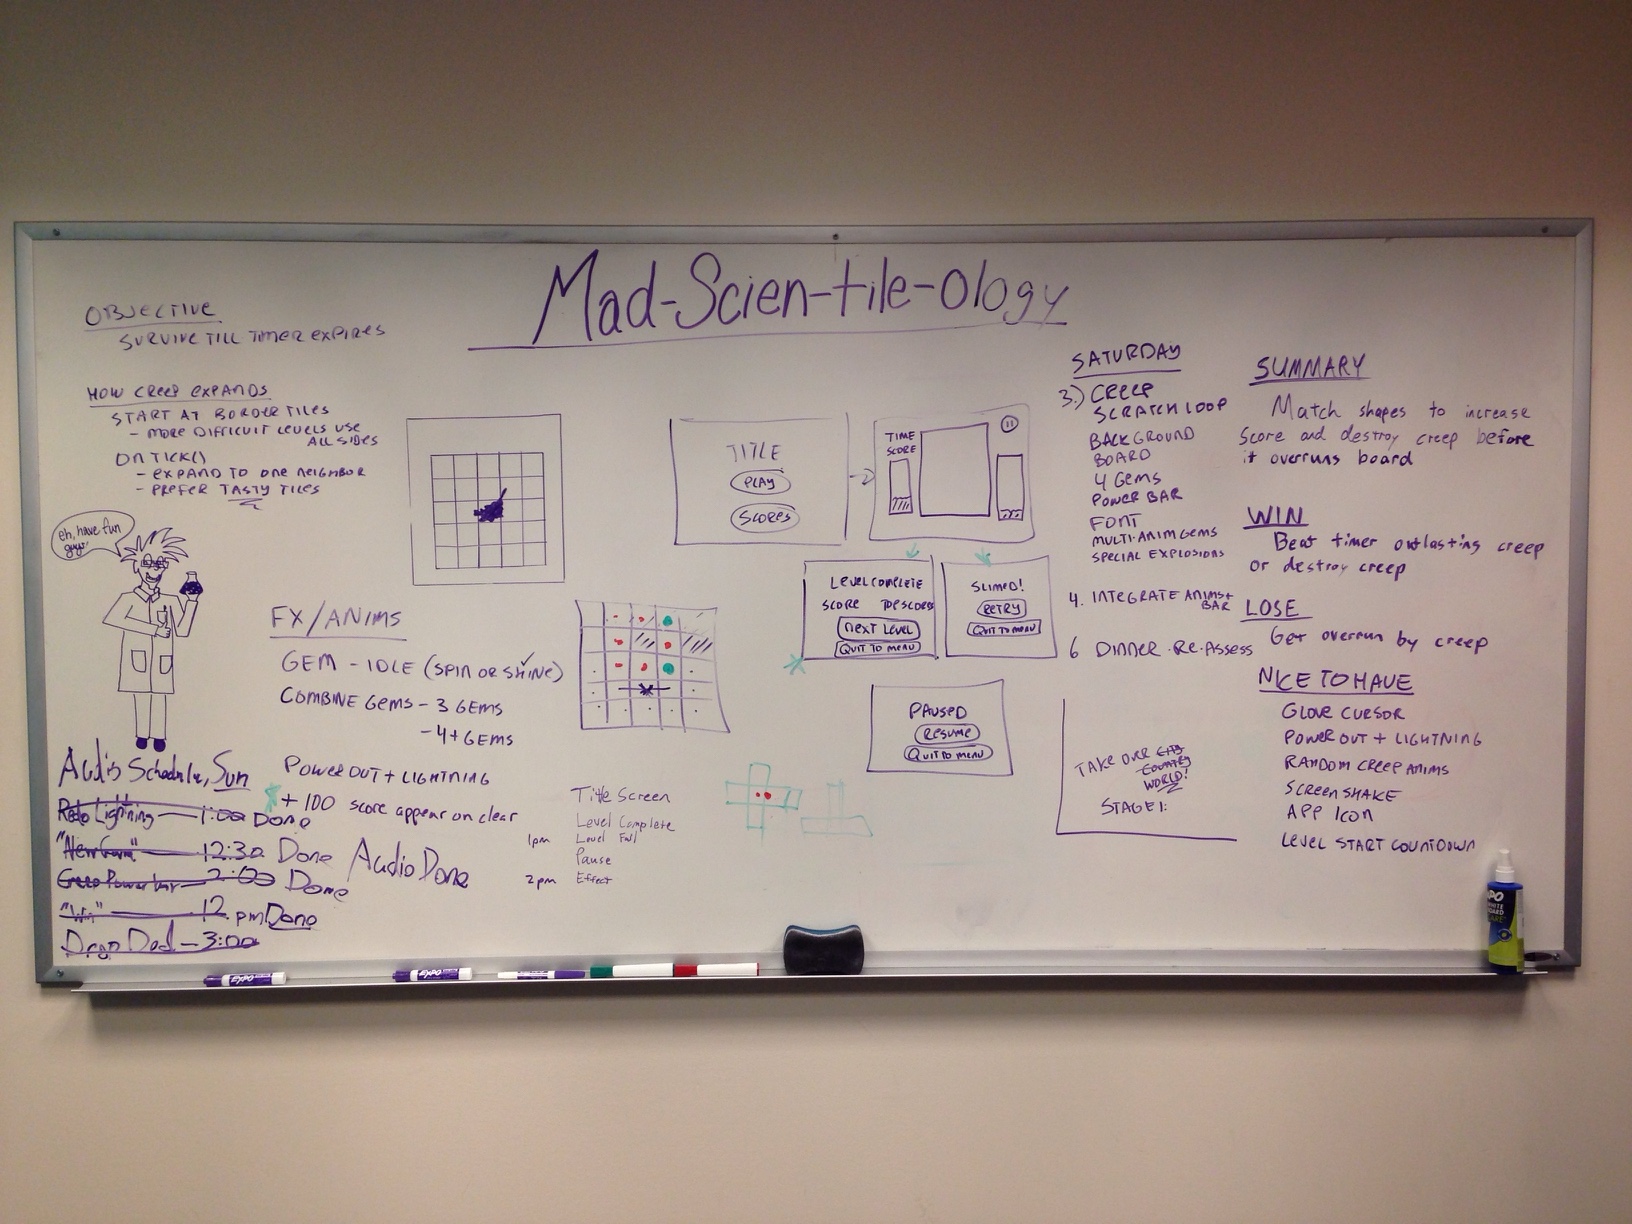 Mad-Scien-tile-ology
OBJECTIVE
SURVIVE TILL TIMER EXPIRES
HOW CREEP EXPANDS
START AT BORDER TILES
- MORE DIFFICULT LEVELS USE
ALL SIDES
ONTICK()
- EXPAND TO ONE NEIGHBOR
- PREFER TASTY TILES
eh, have fun
guys!
FX/ANIMS
GEM - IDLE (SPIN OR SHINE)
COMBINE GEMS - 3 GEMS
- 4+ GEMS
POWER OUT + LIGHTNING
+ 100 score appear on clear
Audio Schedule, Sun
Redo Lightning - 1:00 Done
"New Game" - 12:30 Done
Creep Power bar - 2:00 Done
"Win" - 12 pm Done
Drop Dead - 3:00
Audio Done
Title Screen
Level Complete
1pm Level Fail
Pause
2pm Effect
TITLE
PLAY
SCORES
TIME
SCORE
LEVEL COMPLETE
SCORE TOP SCORES
NEXT LEVEL
QUIT TO MENU
SLIMED!
RETRY
QUIT TO MENU
PAUSED
RESUME
QUIT TO MENU
SATURDAY
3.) CREEP
SCRATCH LOOP
BACKGROUND
BOARD
4 GEMS
POWER BAR
FONT
MULTI-ANIM GEMS
SPECIAL EXPLOSIONS
4. INTEGRATE ANIMS +
BAR
6 DINNER - RE-ASSESS
TAKE OVER CITY
COUNTRY
WORLD!
STAGE 1:
SUMMARY
Match shapes to increase
score and destroy creep before
it overruns board
WIN
Beat timer outlasting creep
or destroy creep
LOSE
Get overrun by creep
NICE TO HAVE
GLOVE CURSOR
POWER OUT + LIGHTNING
RANDOM CREEP ANIMS
SCREEN SHAKE
APP ICON
LEVEL START COUNTDOWN
EXPO
EXPO
EXPO
WHITE
BOARD
CARE